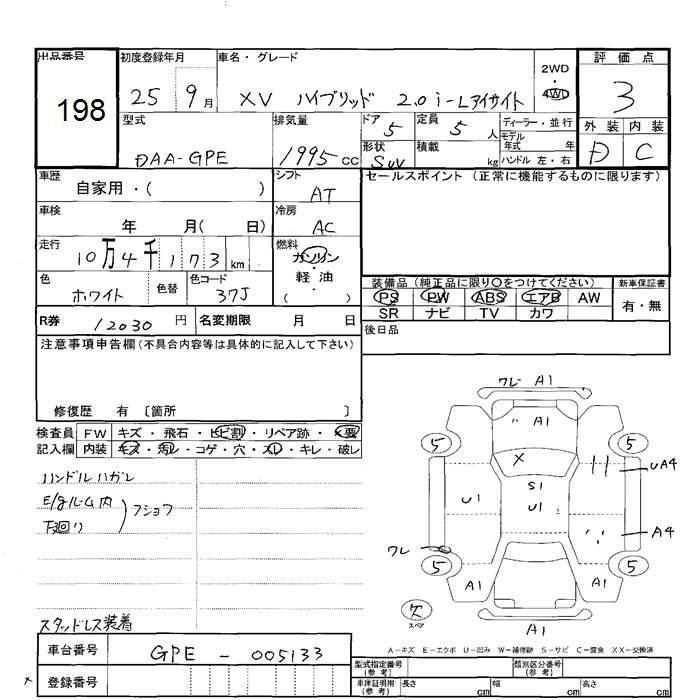 出品番号 198
初度登録年月 25 9月
車名・グレード XV ハイブリッド 2.0 i-Lアイサイト
2WD・4WD
評価点 3
外装 D 内装 C
型式 DAA-GPE
排気量 1995cc
ドア 5
形状 SUV
定員 5人
積載 kg
ディーラー・並行
モデル年式 年
ハンドル 左・右
車歴 自家用・( )
シフト AT
車検 年 月( 日)
冷房 AC
走行 10万4千173km
燃料 ガソリン・軽油 ( )
色 ホワイト 色替 色コード 37J
R券 12030円 名変期限 月 日
セールスポイント(正常に機能するものに限ります)
装備品(純正品に限り○をつけてください) 新車保証書
PS PW ABS エアB AW 有・無
SR ナビ TV カワ
後日品
注意事項申告欄(不具合内容等は具体的に記入して下さい)
修復歴 有〔箇所 〕
検査員 FW キズ・飛石・ヒビ割・リペア跡・×要
記入欄 内装 キズ・汚レ・コゲ・穴・スレ・キレ・破レ
ハンドルハガレ
E/gルーム内
下廻り
フショク
スタッドレス装着
ワレ A1
A1
5 5
×
S1
U1
U1
UA4
A4
ワレ
5 5
A1 A1
欠
スペア
A1
A-キズ E-エクボ U-凹み W-補修跡 S-サビ C-腐食 XX-交換済
車台番号 GPE-005133
登録番号
型式指定番号(参考) 類別区分番号(参考)
車庫証明用(参考) 長さ cm 幅 cm 高さ cm